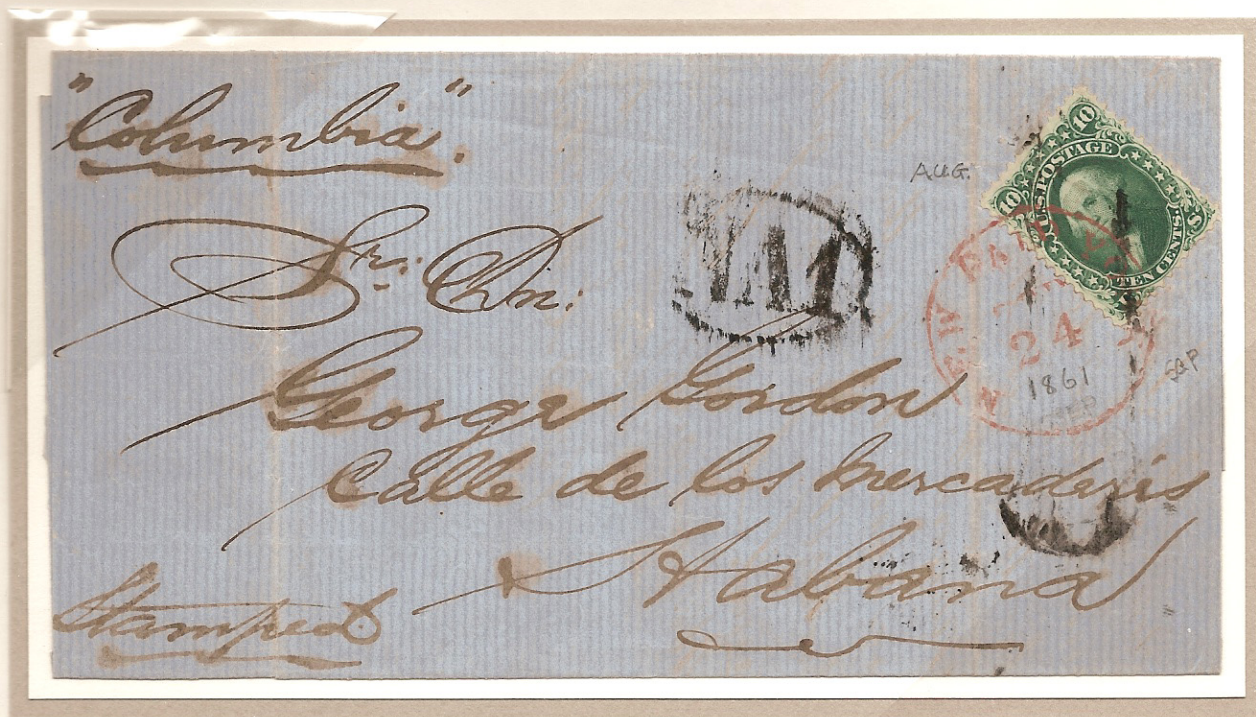 "Columbia".
Sr. Dn:
George Gordon
Calle de los Mercaderis
Habana
Stamped
NA1
AUG.
10
10
U.S. POSTAGE
TEN CENTS
NEW PAID YO
24
1861
SEP